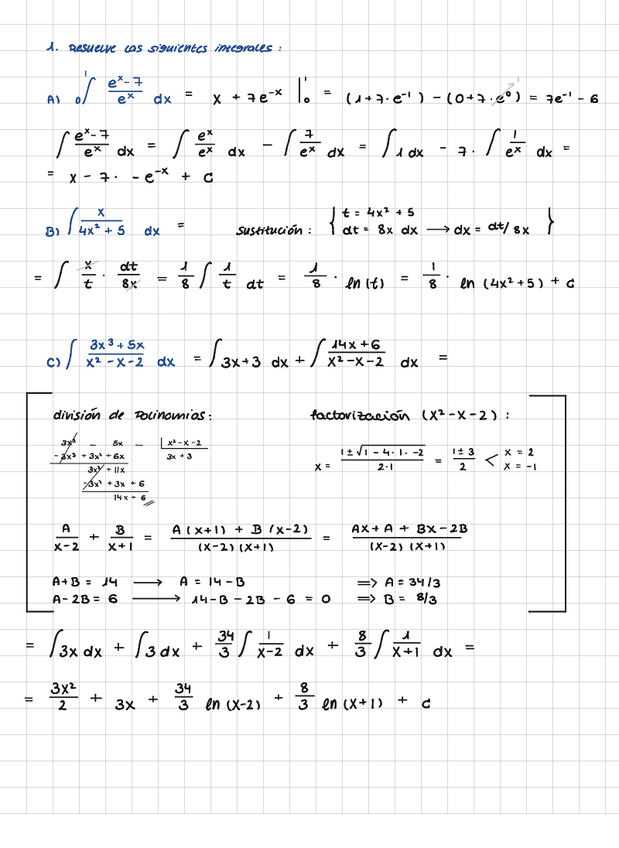 1. Resuelve las siguientes integrales :
A) ₀∫¹ (eˣ-7)/eˣ dx = x + 7e⁻ˣ |₀¹ = (1+7·e⁻¹) - (0+7·e⁰) = 7e⁻¹ - 6
∫ (eˣ-7)/eˣ dx = ∫ eˣ/eˣ dx - ∫ 7/eˣ dx = ∫ 1 dx - 7 · ∫ 1/eˣ dx =
= x - 7 · - e⁻ˣ + C
B) ∫ x/(4x² + 5) dx = sustitución : { t = 4x² + 5
dt = 8x dx → dx = dt/8x }
= ∫ x/t · dt/8x = 1/8 ∫ 1/t dt = 1/8 · ln(t) = 1/8 · ln (4x²+5) + C
C) ∫ (3x³ + 5x)/(x² - x - 2) dx = ∫ 3x+3 dx + ∫ (14x+6)/(x²-x-2) dx =
división de Polinomios : factorización (x² - x - 2) :
3x³ - 5x - | x²-x-2
-3x³ + 3x² + 6x 3x + 3
3x² + 11x
-3x² + 3x + 6
14x + 6
x = (1 ± √(1 - 4 · 1 · -2))/(2·1) = (1 ± 3)/2 < x = 2
x = -1
A/(x-2) + B/(x+1) = (A(x+1) + B(x-2))/((x-2)(x+1)) = (Ax + A + Bx - 2B)/((x-2)(x+1))
A+B = 14 → A = 14-B => A = 34/3
A-2B = 6 → 14-B - 2B - 6 = 0 => B = 8/3
= ∫ 3x dx + ∫ 3 dx + 34/3 ∫ 1/(x-2) dx + 8/3 ∫ 1/(x+1) dx =
= 3x²/2 + 3x + 34/3 ln (x-2) + 8/3 ln (x+1) + C